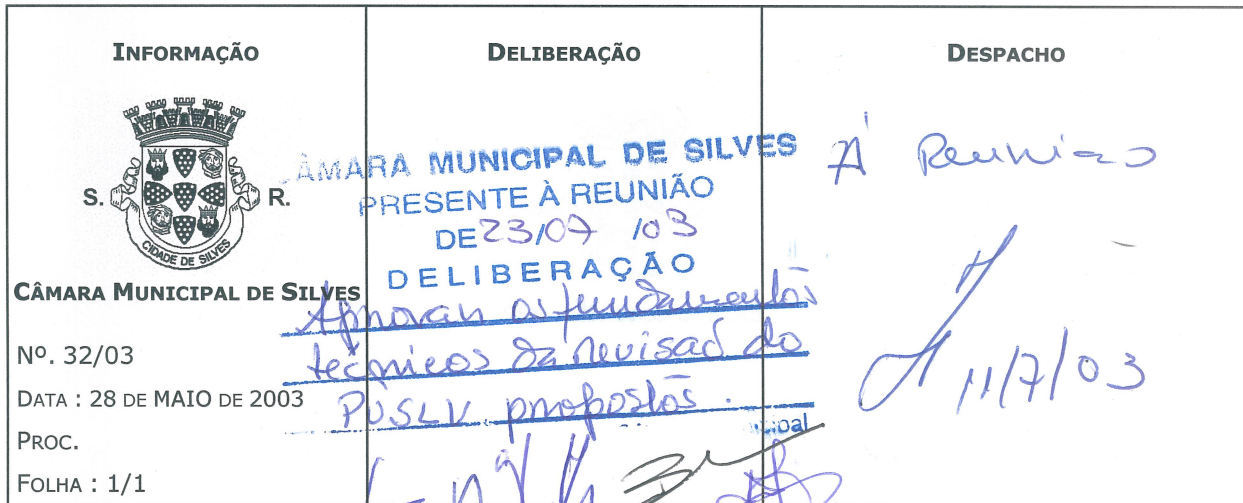 INFORMAÇÃO
S. R.
CIDADE DE SILVES
CÂMARA MUNICIPAL DE SILVES
Nº. 32/03
DATA : 28 DE MAIO DE 2003
PROC.
FOLHA : 1/1
DELIBERAÇÃO
CÂMARA MUNICIPAL DE SILVES
PRESENTE À REUNIÃO
DE 23/07 /03
DELIBERAÇÃO
Aprovar os fundamentos
técnicos da revisão do
PUSLV propostos.
DESPACHO
À Reunião
11/7/03